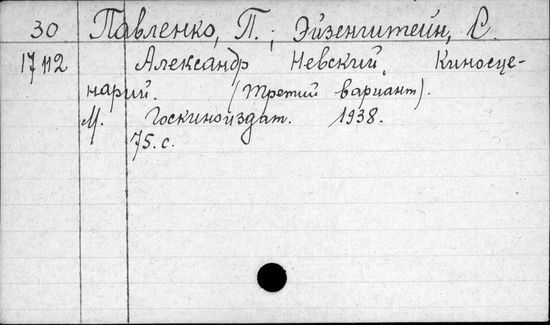 30 Павленко, П.; Эйзенштейн, С.
17112 Александр Невский. Киносце-
нарий. (Третий вариант).
М. Госкиноиздат. 1938.
75. с.